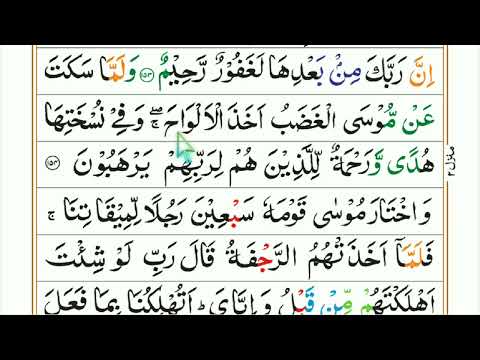 اِنَّ رَبَّكَ مِنْۢ بَعْدِهَا لَغَفُوْرٌ رَّحِيْمٌ ﴿۱۵۳﴾ وَلَمَّا سَكَتَ
عَنْ مُّوْسَى الْغَضَبُ اَخَذَ الْاَلْوَاحَ ۖۚ وَفِيْ نُسْخَتِهَا
هُدًى وَّرَحْمَةٌ لِّلَّذِيْنَ هُمْ لِرَبِّهِمْ يَرْهَبُوْنَ ﴿۱۵۴﴾
وَاخْتَارَ مُوْسٰى قَوْمَهٗ سَبْعِيْنَ رَجُلًا لِّمِيْقَاتِنَا ۚ
فَلَمَّاۤ اَخَذَتْهُمُ الرَّجْفَةُ قَالَ رَبِّ لَوْ شِئْتَ
اَهْلَكْتَهُمْ مِّنْ قَبْلُ وَاِيَّايَ ؕ اَتُهْلِكُنَا بِمَا فَعَلَ